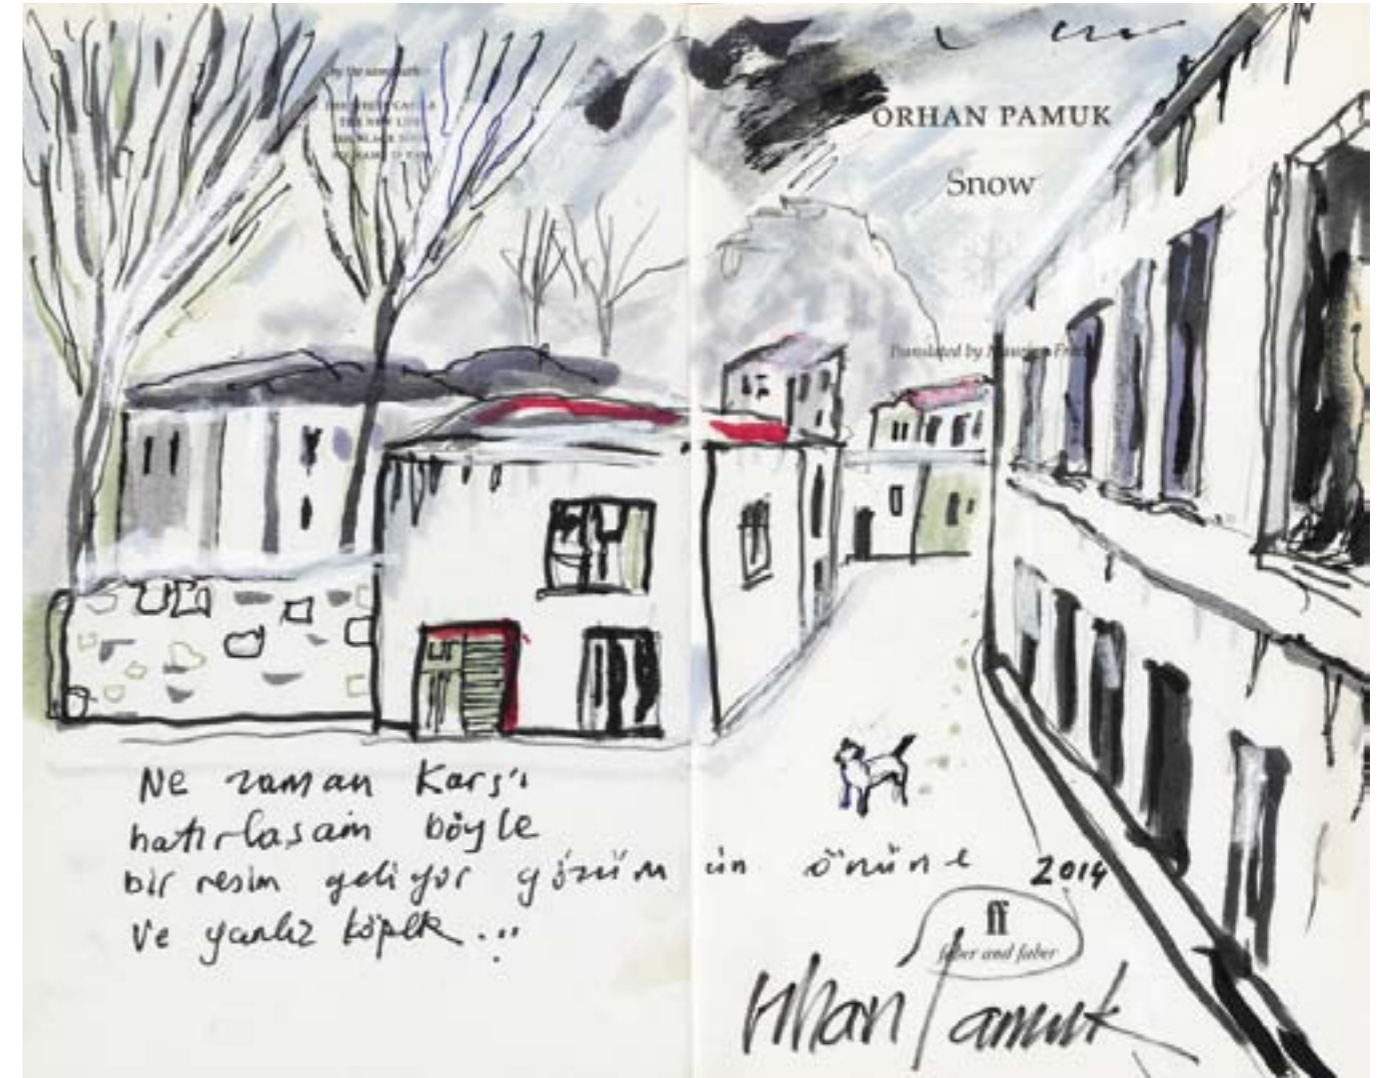 by the same author
THE WHITE CASTLE
THE NEW LIFE
THE BLACK BOOK
MY NAME IS RED
ORHAN PAMUK
Snow
Translated by Maureen Freely
Ne zaman Kars'ı
hatırlasam böyle
bir resim geliyor gözümün önüne
Ve yanlız köpek...
2014
ff
faber and faber
Orhan Pamuk